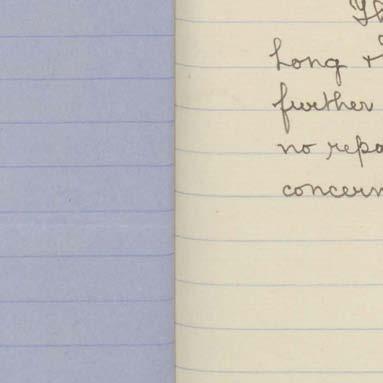 Th
Long +
further
no repo
concern